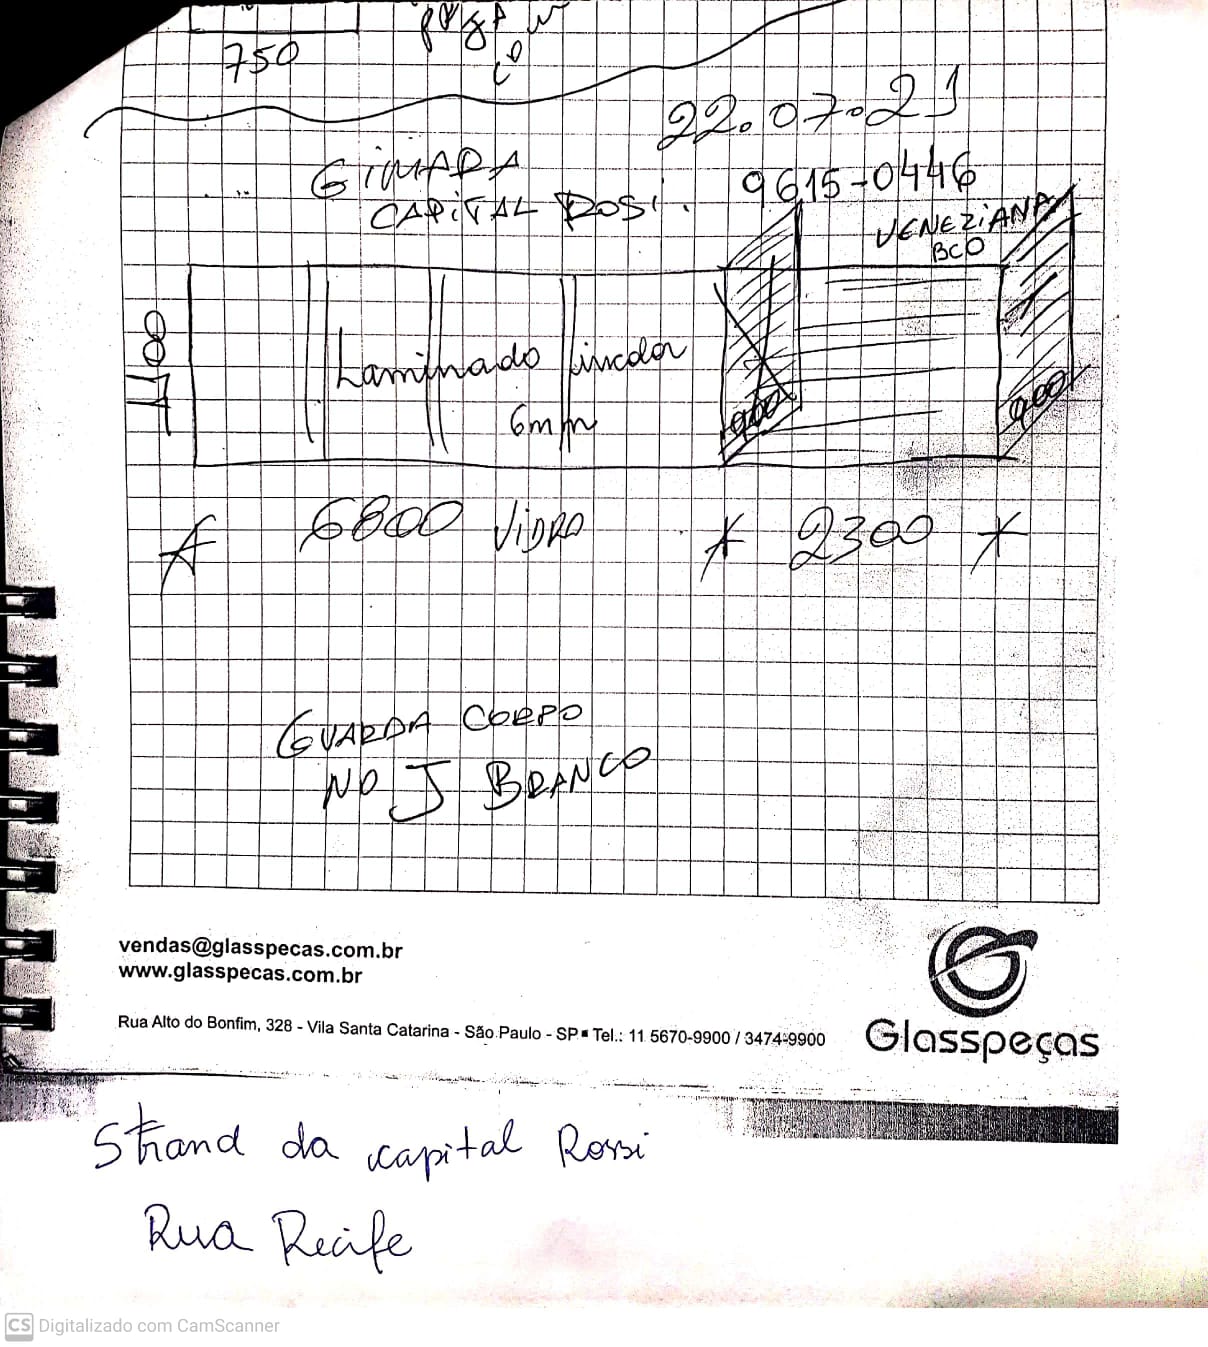 750
22.07.21
GIMARA
CAPITAL ROSi. 9615-0446
VENEZIANA
BCO
Laminado incolor
6mm
900
900
6800 VIDRO
2300
GUARDA CORPO
NO J BRANCO
vendas@glasspecas.com.br
www.glasspecas.com.br
Rua Alto do Bonfim, 328 - Vila Santa Catarina - São Paulo - SP ▪ Tel.: 11 5670-9900 / 3474-9900
Glasspeças
Strand da capital Rossi
Rua Recife
CS Digitalizado com CamScanner